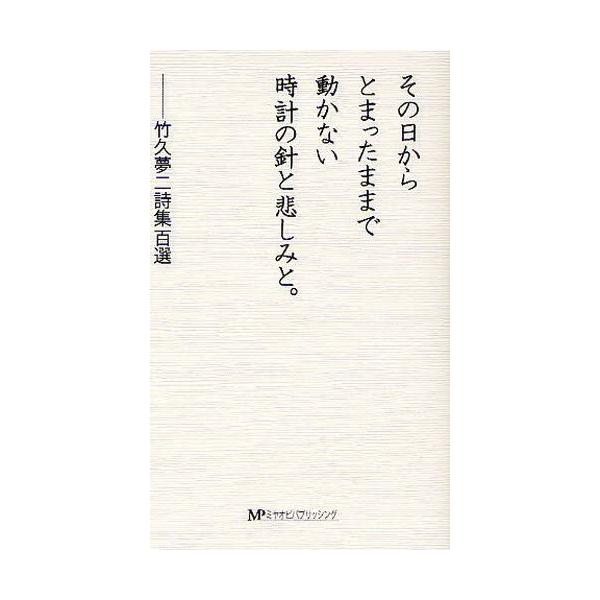 その日から
とまったままで
動かない
時計の針と悲しみと。
――竹久夢二詩集百選
MPミヤオビパブリッシング